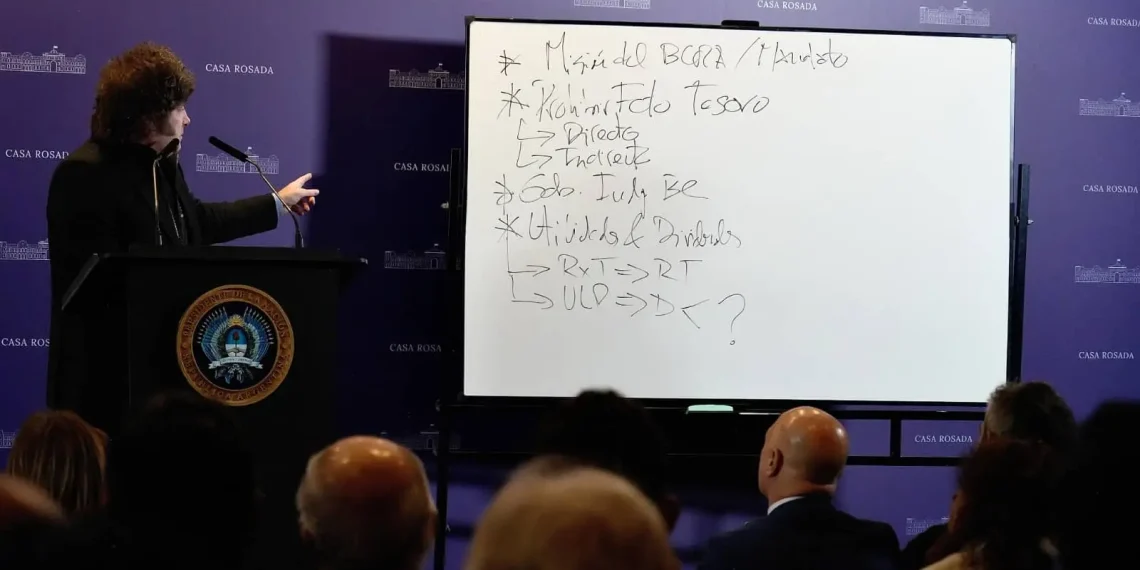 CASA ROSADA
CASA ROSADA
CASA ROSADA
CASA ROSAD
CASA ROSA
CASA ROSADA
CASA ROS
CASA ROSA
CASA ROSADA
CASA ROSADA
* Misión del BCRA / Mandato
* Prohibir Fdo Tesoro
↳ Directo
↳ Indirecto
* Gob. BC
* Utilidades & Dividendos
→ RxT ⇒ RT
↳ ULD ⇒ D < ?